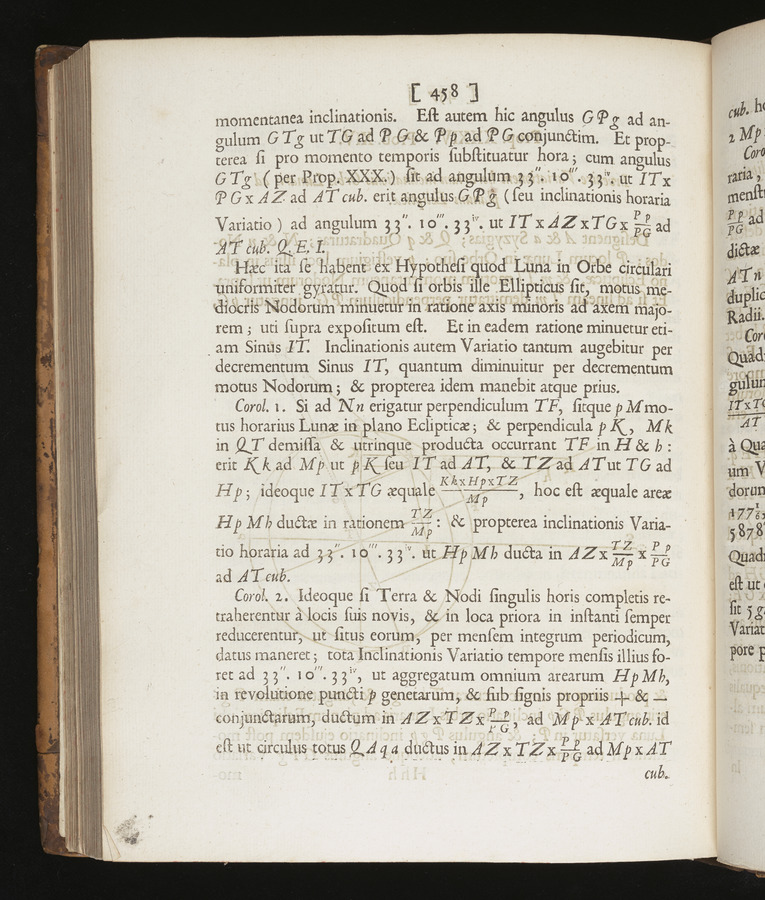 [ 458 ]
momentanea inclinationis. Est autem hic angulus GPg ad an-
gulum GTg ut TG ad PG & Pp ad PG conjunctim. Et prop-
terea si pro momento temporis substituatur hora; cum angulus
GTg (per Prop. XXX.) sit ad angulum 33″. 10‴. 33ⁱᵛ. ut IT x
PG x AZ ad AT cub. erit angulus GPg (seu inclinationis horaria
Variatio) ad angulum 33″. 10‴. 33ⁱᵛ. ut IT x AZ x TG x Pp/PG ad
AT cub. Q. E. I.
Hæc ita se habent ex Hypothesi quod Luna in Orbe circulari
uniformiter gyratur. Quod si orbis ille Ellipticus sit, motus me-
diocris Nodorum minuetur in ratione axis minoris ad axem majo-
rem; uti supra expositum est. Et in eadem ratione minuetur eti-
am Sinus IT. Inclinationis autem Variatio tantum augebitur per
decrementum Sinus IT, quantum diminuitur per decrementum
motus Nodorum; & propterea idem manebit atque prius.
Corol. 1. Si ad Nn erigatur perpendiculum TF, sitque pM mo-
tus horarius Lunæ in plano Eclipticæ; & perpendicula pK, Mk
in QT demissa & utrinque producta occurrant TF in H & h:
erit Kk ad Mp ut pK seu IT ad AT, & TZ ad AT ut TG ad
Hp; ideoque IT x TG æquale Kk x Hp x TZ/Mp, hoc est æquale areæ
HpMh ductæ in rationem TZ/Mp: & propterea inclinationis Varia-
tio horaria ad 33″. 10‴. 33ⁱᵛ. ut HpMh ducta in AZ x TZ/Mp x Pp/PG
ad AT cub.
Corol. 2. Ideoque si Terra & Nodi singulis horis completis re-
traherentur à locis suis novis, & in loca priora in instanti semper
reducerentur, ut situs eorum, per mensem integrum periodicum,
datus maneret; tota Inclinationis Variatio tempore mensis illius fo-
ret ad 33″. 10‴. 33ⁱᵛ, ut aggregatum omnium arearum HpMh,
in revolutione puncti p generatum, & sub signis propriis + & —
conjunctarum, ductum in AZ x TZ x Pp/PG, ad Mp x AT cub. id
est ut circulus totus QAqa ductus in AZ x TZ x Pp/PG ad Mp x AT
cub.
cub.
2 Mp
Coro
raria,
menst
Pp/PG ad
dictæ
AT n
duplic
Radii.
Cor
Quad
gulun
IT x TG
AT
à Qua
um V
dorum
5878
Quad
est ut
sit 5 g
Variat
pore p